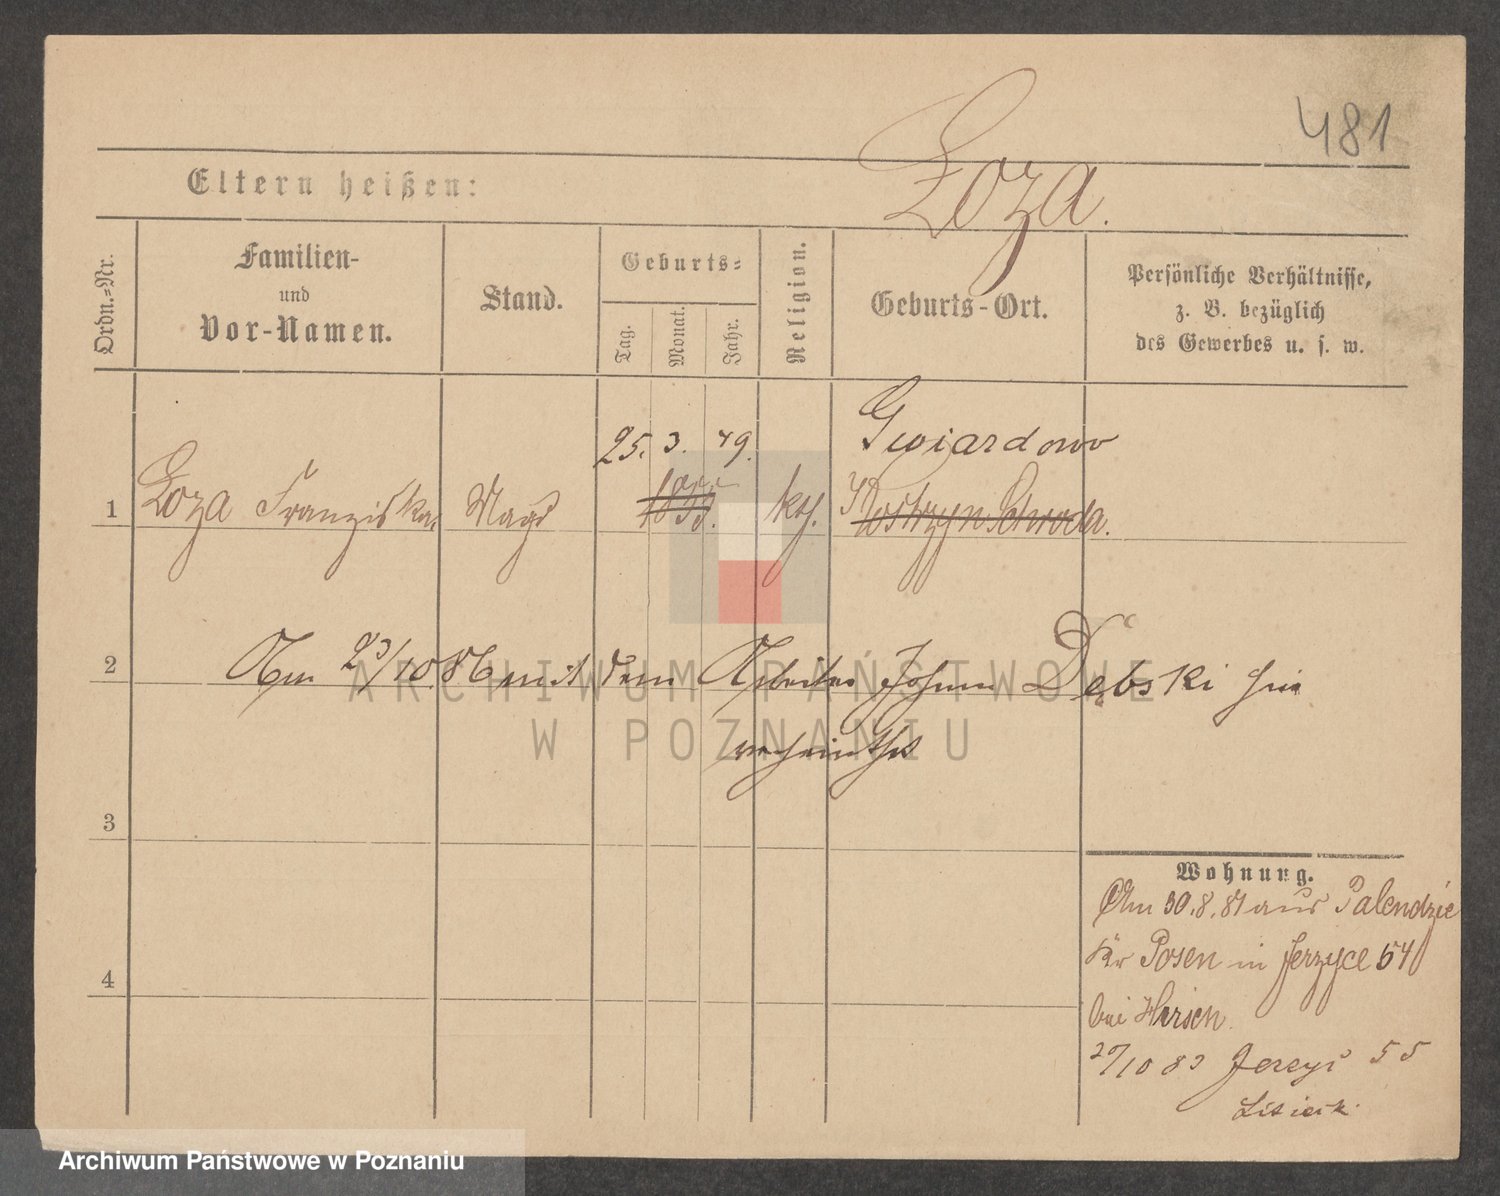 481
Loza.
Eltern heißen:
Ordn.-Nr.
Familien-
und
Vor-Namen.
Stand.
Geburts-
Tag.
Monat.
Jahr.
Religion.
Geburts-Ort.
Persönliche Verhältnisse,
z. B. bezüglich
des Gewerbes u. s. w.
25. 3. 49. Gwiardowo
1 Loza Franziska Magd kth. Kostrzyn Schroda.
2 Am 23/10.86 mit dem Arbeiter Johann Dębski hier
verheirathet
3
4
Wohnung.
Am 30.8.81 aus Palendzie
Kr Posen in Jerzyce 54
bei Hirsch.
/10 83 Jerzyc 55
ARCHIWUM PAŃSTWOWE
W POZNANIU
Archiwum Państwowe w Poznaniu